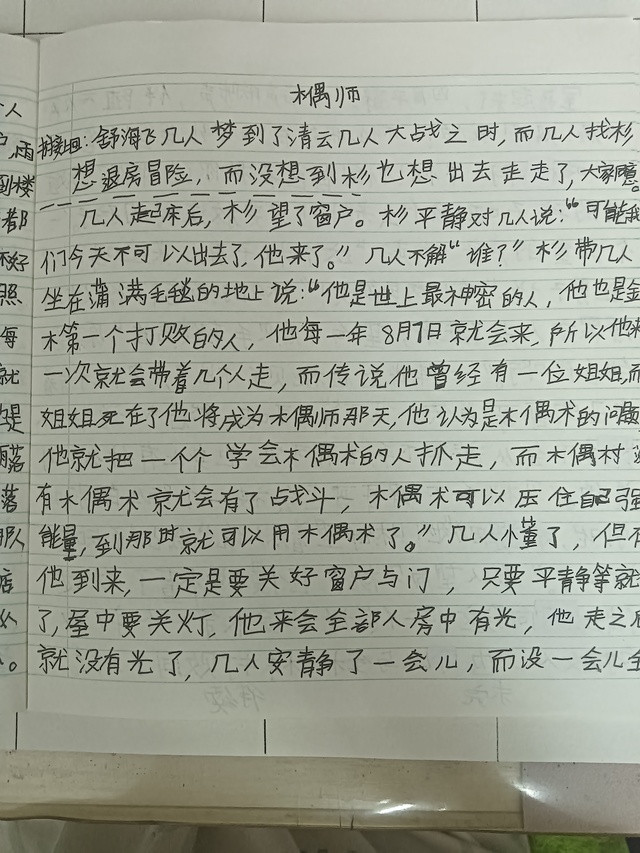 木偶师
接上回：舒海飞几人梦到了清云几人大战之时，而几人找杉
想退房冒险，而没想到杉也想出去走走了，大家
几人起床后，杉望了窗户。杉平静对几人说：“可能我
们今天不可以出去了，他来了。”几人不解“谁？”杉带几人
坐在蒲满毛毯的地上说：“他是世上最神密的人，他也是金
木第一个打败的人，他每一年8月7日就会来，所以他来
一次就会带着几个人走，而传说他曾经有一位姐姐，而
姐姐死在了他将成为木偶师那天，他认为是木偶术的问题
他就把一个个学会木偶术的人抓走，而木偶村
有木偶术就会有了战斗，木偶术可以压住自己强
能量，到那时就可以用木偶术了。”几人懂了，但
他到来，一定是要关好窗户与门，只要平静等就
了，屋中要关灯，他来会全部人房中有光，他走之后
就没有光了，几人安静了一会儿，而没一会儿全
个人
户，雨
到楼
者都
不好
照
每
就
也是
雨落
落
那队
店
么
。